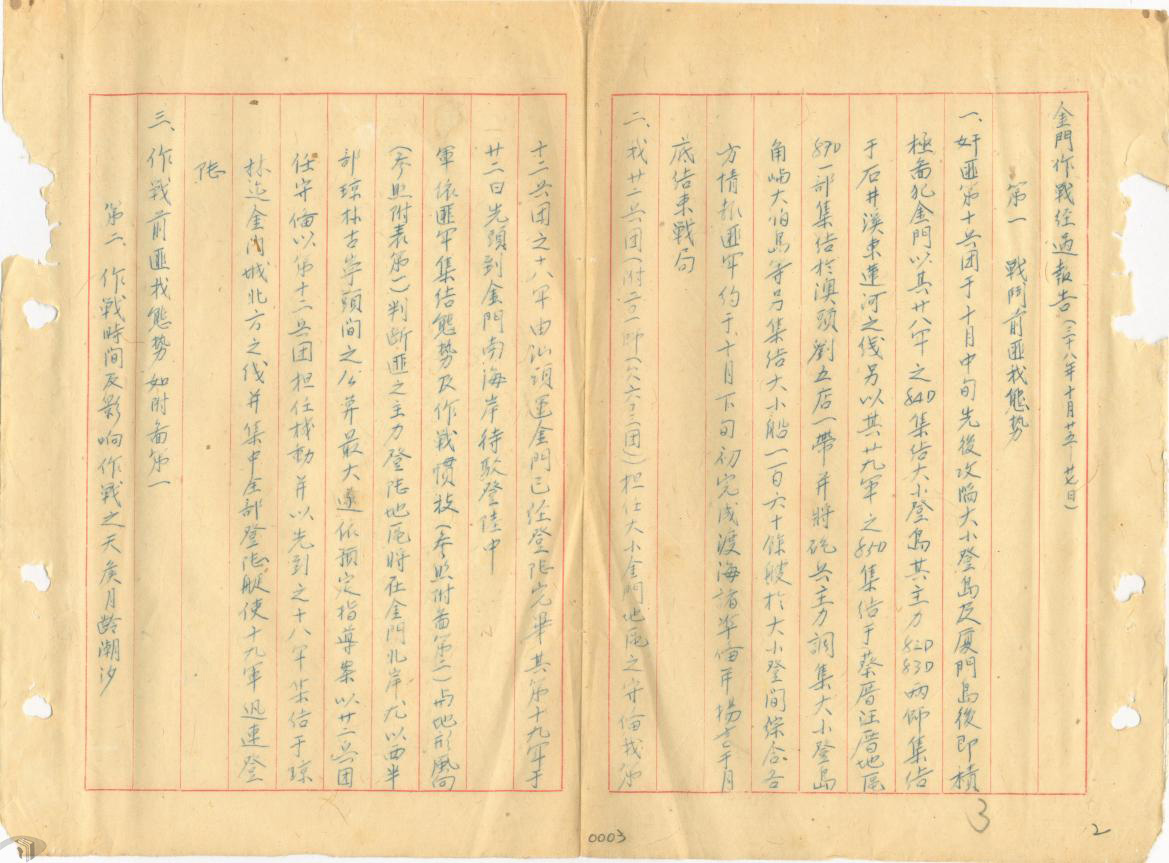 金門作戰經過報告(三十八年十月廿五—廿七日)
第一 戰鬥前匪我態勢
一、奸匪第十兵团于十月中旬先後攻陷大小登島及厦門島後即積
極畨犯金門以其廿八军之84D集结大小登島其主力82D83D两师集结
于石井溪東蓮河之线另以其廿九軍之85D集结于蔡厝汪厝地區
87D一部集结於澳頭劉五店一帶并將砲兵主力調集大小登島
角嶼大伯島等另集结大小船一百六十條艘於大小登間综合各
方情報匪军约于十月下旬初完成渡海諸準备并揚言于月
底结束戰鬥
二、我廿二兵团(附二〇一师(欠六〇三团)担任大小金門地區之守备我第
十二兵团之十八军由汕頭運金門已经登陸完畢其第十九军于
廿二日先頭到金門南海岸待駁登陸中
軍依匪军集结態勢及作戰惯技(参照附畨第二)与地形風向
(参照附表第一)判断匪之主力登陸地區將在金門北岸尤以西半
部琼林古寧頭間之公算最大遂依預定指導案以廿二兵团
任守备以第十二兵团担任機動并以先到之十八军集结于琼
林迄金門城北方之线并集中全部登陸艇使十九軍迅速登
陸
三、作戰前匪我態势如附畨第一
第二、作戰時间及影响作戰之天候月龄潮汐
3
2
0003